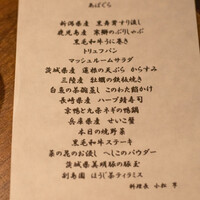 あぱぐら
新潟県産 黒寿首すり流し
鹿児島産 寒鰤のぶりしゃぶ
黒毛和牛うに巻き
トリュフパン
マッシュルームサラダ
茨城県産 蓮根の天ぷら からすみ
三陸産 牡蠣の鉄板焼き
白魚の茶碗蒸し このわた餡かけ
長崎県産 ハーブ鯖寿司
京鴨と九条ネギの鴨鍋
兵庫県産 せいこ蟹
本日の焼野菜
黒毛和牛ステーキ
菜の花のお浸し へしこのパウダー
茨城県美明豚の豚丼
利島園 ほうじ茶ティラミス
料理長 小松